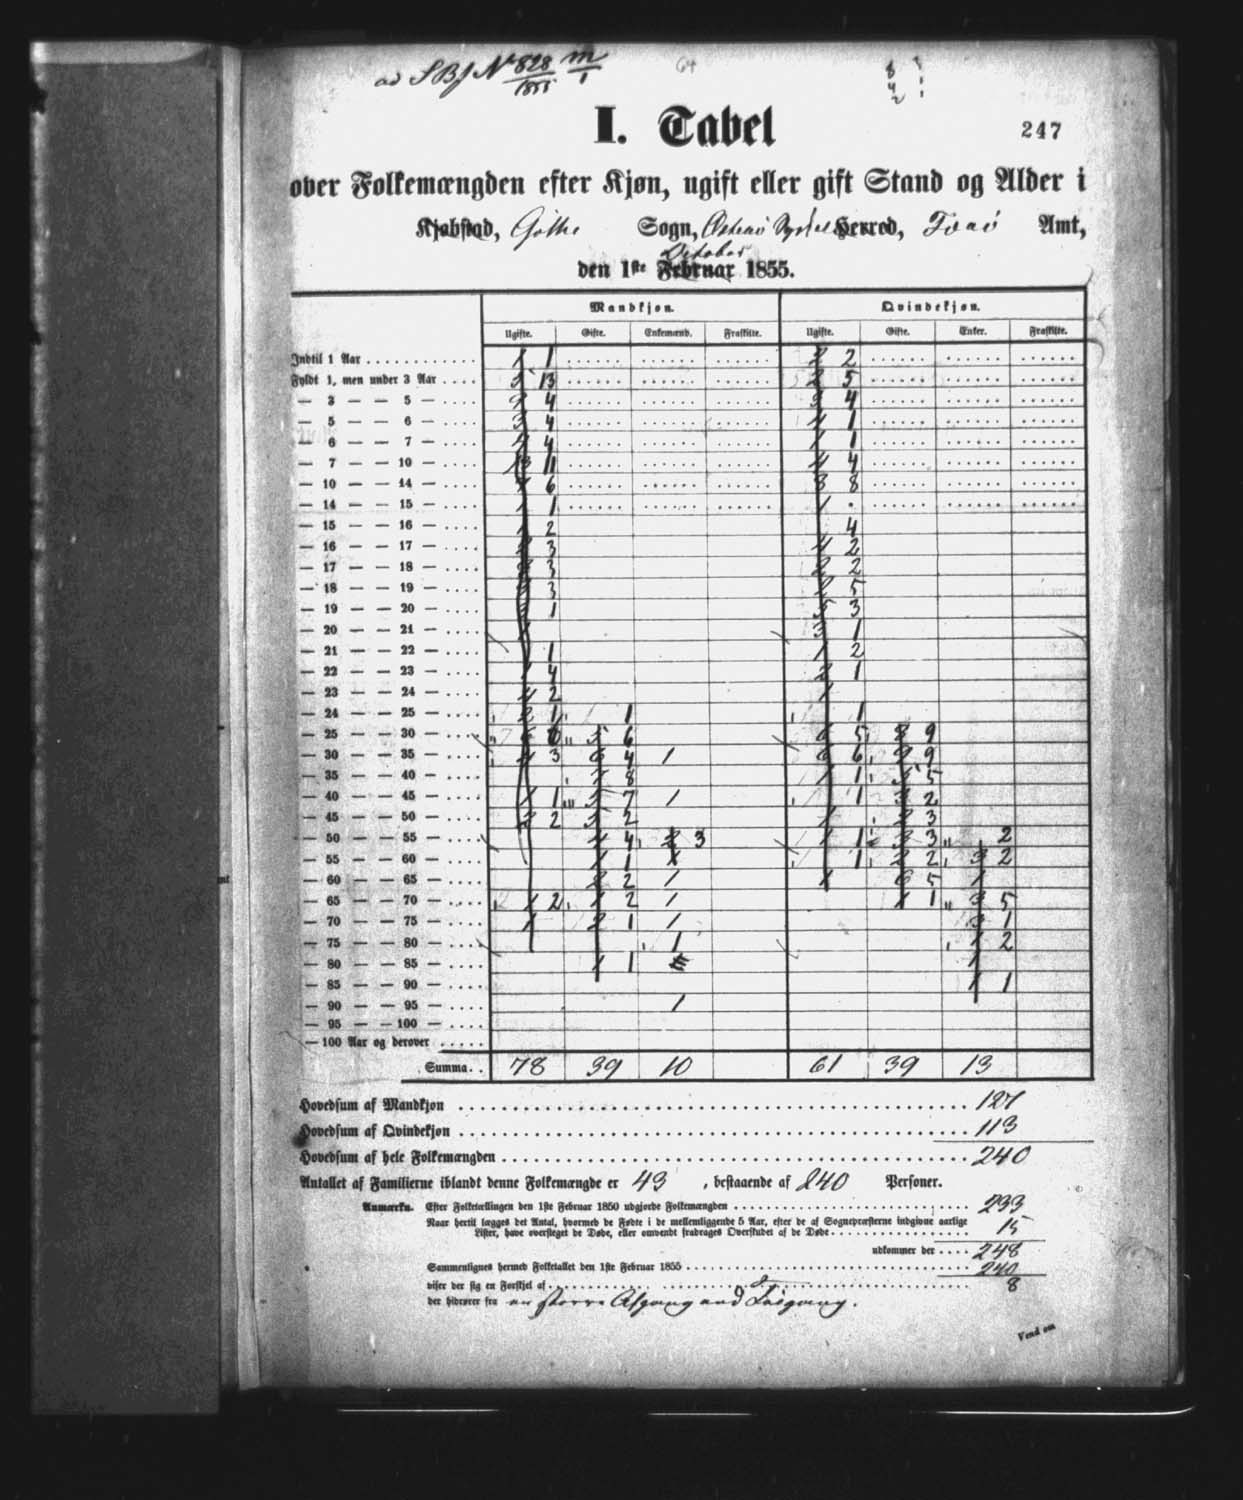 ad SBJ No 828/1855 m/1
64
247
I. Tabel
over Folkemængden efter Kjøn, ugift eller gift Stand og Alder i
Kjøbstad, Gøthe Sogn, Østerø Syssel Herred, Færø Amt,
October
den 1ste Februar 1855.
Mandkjøn. Qvindekjøn.
Ugifte. Gifte. Enkemænd. Fraskilte. Ugifte. Gifte. Enker. Fraskilte.
Indtil 1 Aar 1 2
Fyldt 1, men under 3 Aar 13 5
— 3 — — 5 — 4 4
— 5 — — 6 — 4 1
— 6 — — 7 — 4 1
— 7 — — 10 — 11 4
— 10 — — 14 — 6 8
— 14 — — 15 — 1
— 15 — — 16 — 2 4
— 16 — — 17 — 3 2
— 17 — — 18 — 3 2
— 18 — — 19 — 3 5
— 19 — — 20 — 1 3
— 20 — — 21 — 1
— 21 — — 22 — 1 2
— 22 — — 23 — 4 1
— 23 — — 24 — 2
— 24 — — 25 — 1 1 1
— 25 — — 30 — 6 6 5 9
— 30 — — 35 — 3 4 1 6 9
— 35 — — 40 — 8 1 5
— 40 — — 45 — 1 7 1 1 2
— 45 — — 50 — 2 2 3
— 50 — — 55 — 4 3 1 3 2
— 55 — — 60 — 1 1 2 2
— 60 — — 65 — 2 1 5
— 65 — — 70 — 2 2 1 1 5
— 70 — — 75 — 1 1 1
— 75 — — 80 — 1 2
— 80 — — 85 — 1
— 85 — — 90 — 1
— 90 — — 95 — 1
— 95 — — 100 —
— 100 Aar og derover
Summa. 78 39 10 61 39 13
Hovedsum af Mandkjøn 127
Hovedsum af Qvindekjøn 113
Hovedsum af hele Folkemængden 240
Antallet af Familierne iblandt denne Folkemængde er 43, bestaaende af 240 Personer.
Anmærkn. Efter Folketællingen den 1ste Februar 1850 udgjorde Folkemængden 233
Naar hertil lægges det Antal, hvormed de Fødte i de mellemliggende 5 Aar, efter de af Sognepræsterne indgivne aarlige
Lister, have oversteget de Døde, eller omvendt fradrages Overskudet af de Døde 15
udkommer der 248
Sammenlignes hermed Folketallet den 1ste Februar 1855 240
viser der sig en Forskjel af 8
der hidrører fra en større Afgang end Tilgang.
Vend om